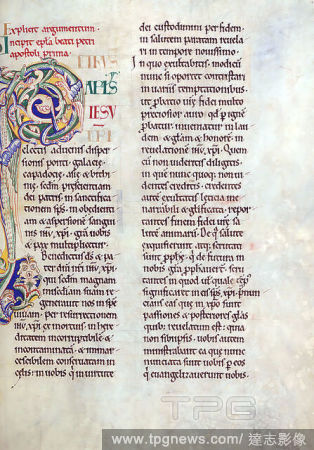 Explicit argumentum.
Incipit epla beati petri
apostoli prima.
PETRUS
APLS
IESV
XPI
electis advenis disper
sionis ponti. galacie.
capadocie. asie & bithi
nie. sedm prescientiam
dei patris. in sanctifica
tionem sps. in obedientia
& aspersione sanguinis
ihu xpi. gra vobis
& pax multiplicetur.
Benedictus ds & pa
ter dni nri ihu xpi.
qui sedm magnam
misediam suam re
generavit nos in spe
vivam. per resurrectionem
ihu xpi ex mortuis. in here
ditatem incorruptibile &
incontaminata. & inmar
cescibilem conservatam in
celis. in vobis q in virtute
dei custodimini per fidem.
in salutem paratam revela
ri in tempore novissimo.
In quo exultabitis. modicu
nunc si oportet contristari
in variis temptationibus.
ut platio vre fidei multo
preciosior auro qd p igne
pbatur. inveniatur in lau
dem. & glam & honore. in
revelatione ihu xpi. Quem
cu non videritis diligitis.
in que nunc quoq. non vi
dentes creditis. credentes
aute exultabitis leticia ine
narrabili & glificata. repor
tantes finem fidei vre sa
lute animaru. De q salute
exquisierunt atq; scrutati
sunt pphe. q de futura in
vobis gra pphaverunt. scru
tantes in quod ut quale tepus
significaret in eis sps xpi. pnun
tians eas que in xpo sunt
passiones & posteriores glas
quib; revelatum est. quia
non sibi ipsis. vobis autem
ministrabant ea que nunc
nuntiata sunt vobis p eos
q evangelizaverunt vobis.
TPG
www.tpgnews.com/達志影像